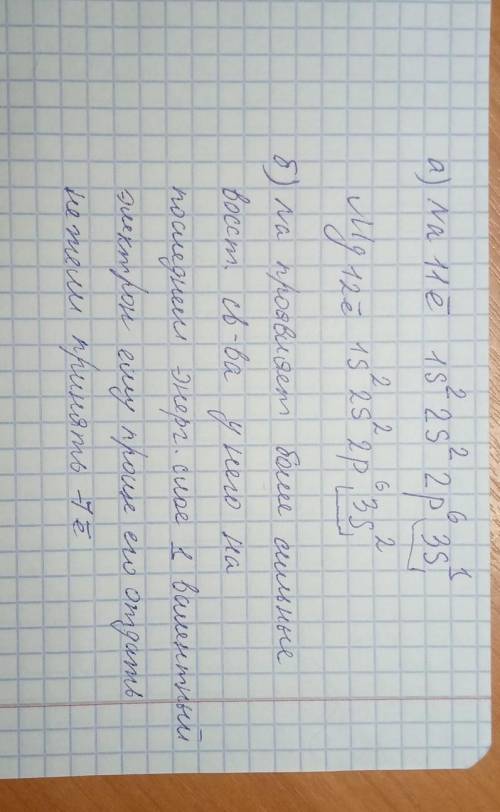 а) Na 11ē 1S² 2S² 2p⁶ 3S¹
Mg 12ē 1S² 2S² 2p⁶ 3S²
б) Na проявляет более сильные
восст. св-ва у него на
последнем энерг. слое 1 валентный
электрон ему проще его отдать
нежели принять 7ē